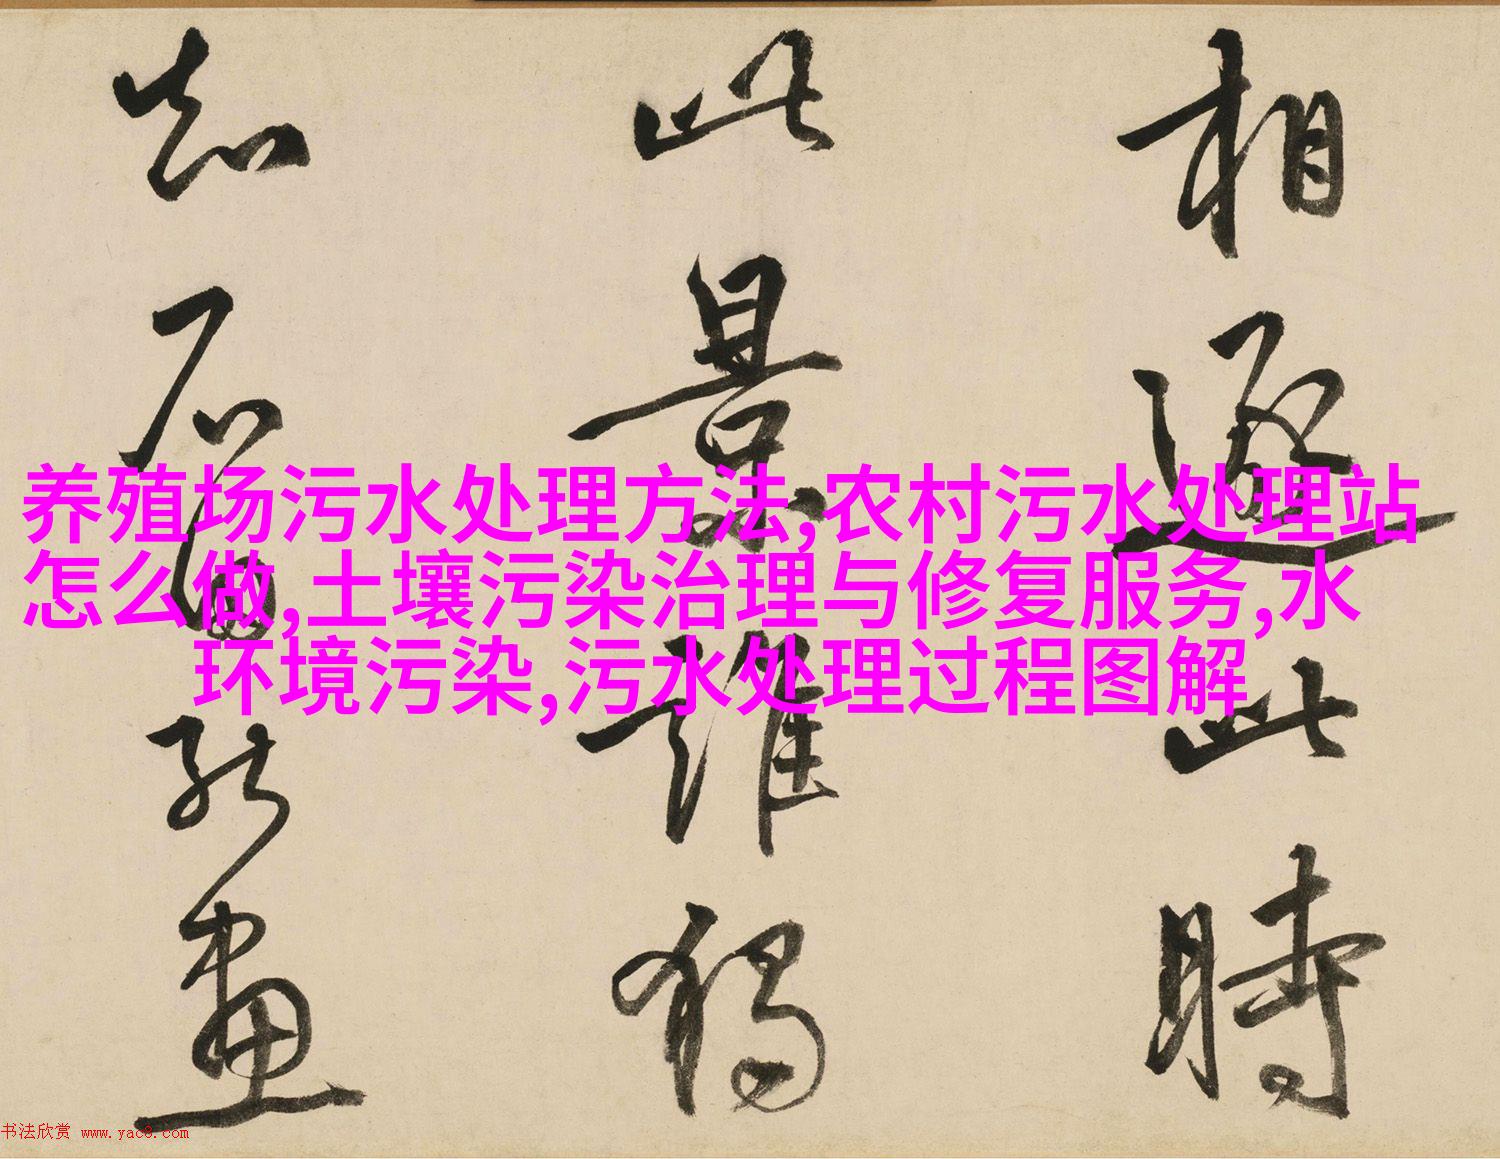 相逐此時
此景誰獨
知石能畫
养殖场污水处理方法,农村污水处理站
怎么做,土壤污染治理与修复服务,水
环境污染,污水处理过程图解
书法欣赏 www.yac8.com